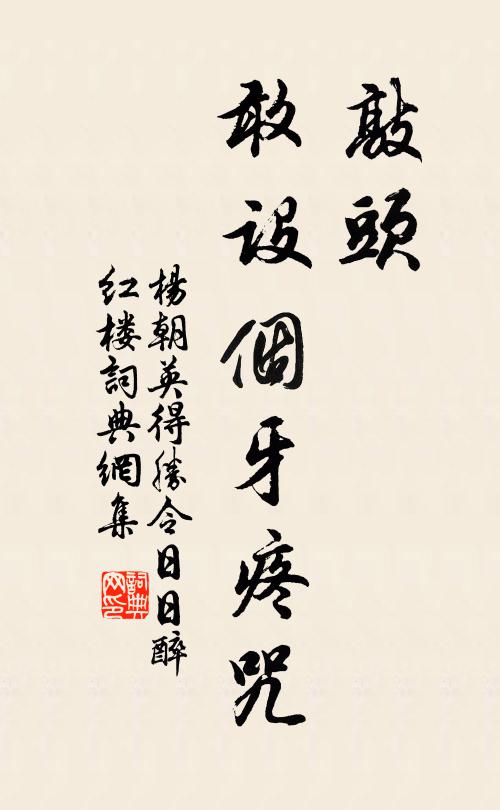 敲頭
敢設個牙疼咒
楊朝英得勝令日日醉
紅楼詞典網集
詞典
网印